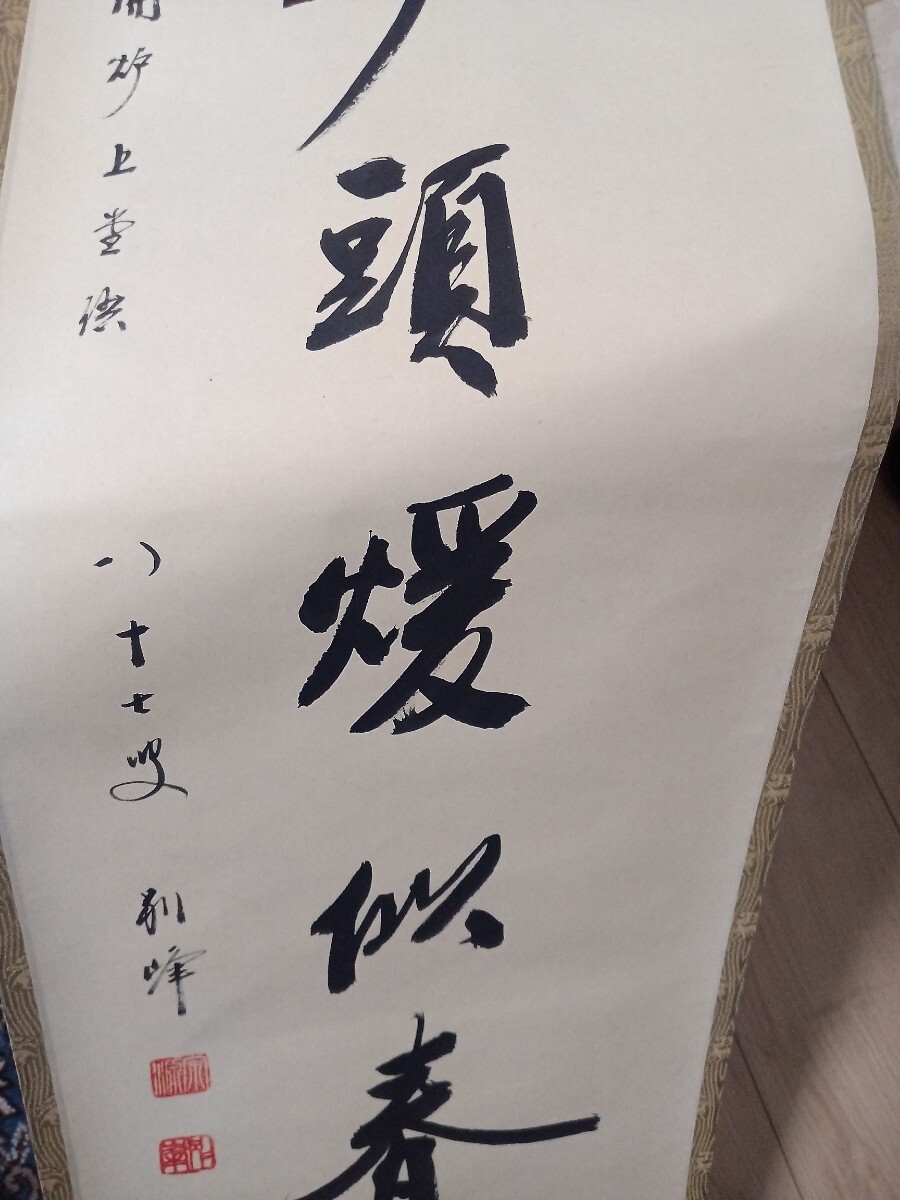 頭煖似春
開炉上堂偈
八十七叟 別峰